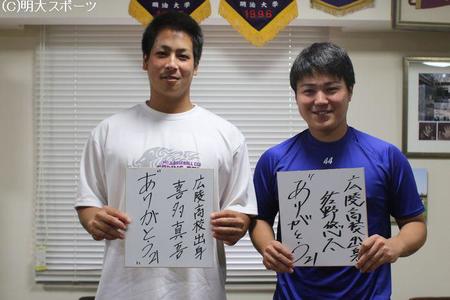 (C)明大スポーツ
明治大学
19.9.6
明治大学
広陵高校出身
喜多真吾
ありがとう!!
44
広陵高校出身
佐野悠太
ありがとう!!